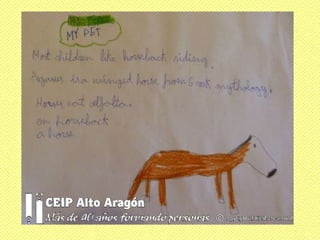 MY PET
Most children like horseback riding.
Pegasus is a winged horse from Greek mythology.
Horses eat alfalfa.
on horseback
a horse
CEIP Alto Aragón
Más de 40 años formando personas